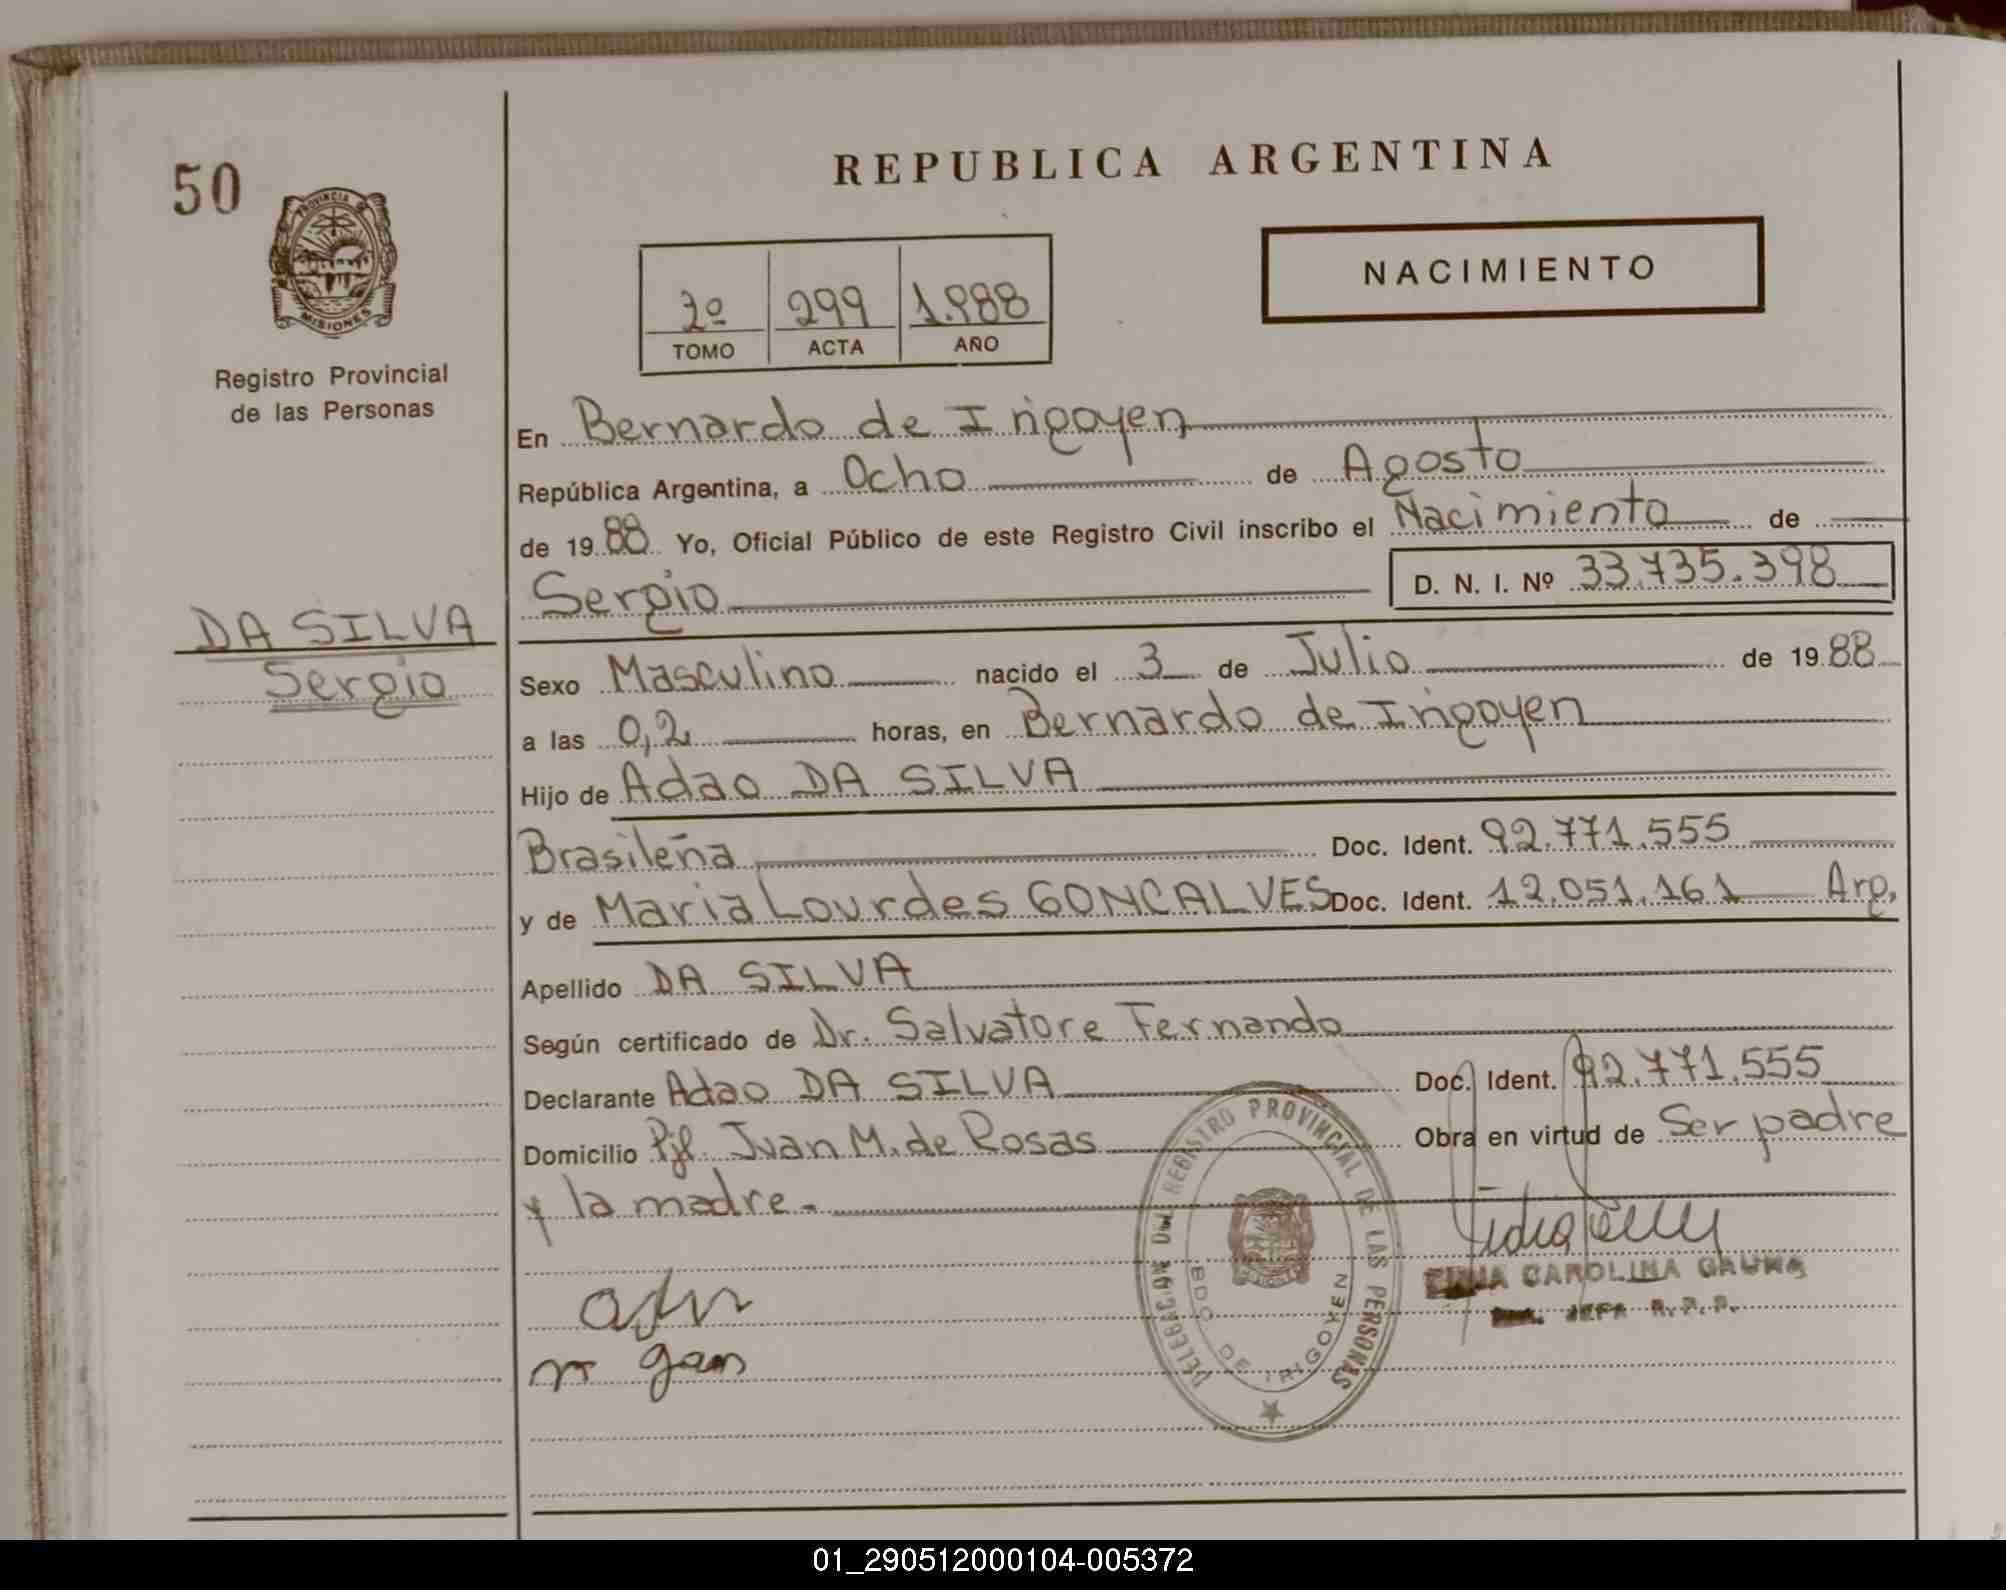 50
PROVINCIA DE
MISIONES
Registro Provincial
de las Personas
DA SILVA
Sergio
REPUBLICA ARGENTINA
2º 299 1.988
TOMO ACTA AÑO
NACIMIENTO
En Bernardo de Irigoyen
República Argentina, a Ocho de Agosto
de 1988 Yo, Oficial Público de este Registro Civil inscribo el Nacimiento de
Sergio D. N. I. Nº 33.735.398
Sexo Masculino nacido el 3 de Julio de 1988
a las 0,2 horas, en Bernardo de Irigoyen
Hijo de Adao DA SILVA
Brasileña Doc. Ident. 92.771.555
y de Maria Lourdes GONCALVES Doc. Ident. 12.051.161 Arg.
Apellido DA SILVA
Según certificado de Dr. Salvatore Fernando
Declarante Adao DA SILVA Doc. Ident. 92.771.555
Domicilio Pje. Juan M. de Rosas Obra en virtud de Ser padre
y la madre.-
DELEGACION DEL REGISTRO PROVINCIAL DE LAS PERSONAS
BDO. DE IRIGOYEN
CAROLINA GAUNA
JEFA R.P.P.
01_290512000104-005372